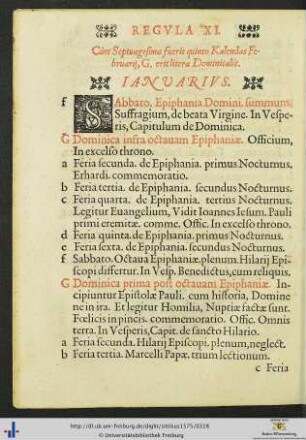 REGVLA XI.
Cùm Septuagesima fuerit quinto Kalendas Fe-
bruarij, G. erit litera Dominicalis.
IANVARIVS.
f SAbbato, Epiphania Domini. summum.
Suffragium, de beata Virgine. In Vespe-
ris, Capitulum de Dominica.
G Dominica infra octauam Epiphaniæ. Officium,
In excelso throno.
a Feria secunda. de Epiphania. primus Nocturnus.
Erhardi. commemoratio.
b Feria tertia. de Epiphania. secundus Nocturnus.
c Feria quarta. de Epiphania. tertius Nocturnus.
Legitur Euangelium, Vidit Ioannes Iesum. Pauli
primi eremitæ. comme. Offic. In excelso throno.
d Feria quinta. de Epiphania. primus Nocturnus.
e Feria sexta. de Epiphania. secundus Nocturnus.
f Sabbato. Octaua Epiphaniæ. plenum. Hilarij Epi-
scopi differtur. In Vesp. Benedictus, cum reliquis.
G Dominica prima post octauam Epiphaniæ. In-
cipiuntur Epistolæ Pauli. cum historia, Domine
ne in ira. Et legitur Homilia, Nuptiæ factæ sunt.
Fœlicis in pincis. commemoratio. Offic. Omnis
terra. In Vesperis, Capit. de sancto Hilario.
a Feria secunda. Hilarij Episcopi. plenum, neglect.
b Feria tertia. Marcelli Papæ. trium lectionum.
c Feria
http://dl.ub.uni-freiburg.de/diglit/stitilius1575/0328
© Universitätsbibliothek Freiburg